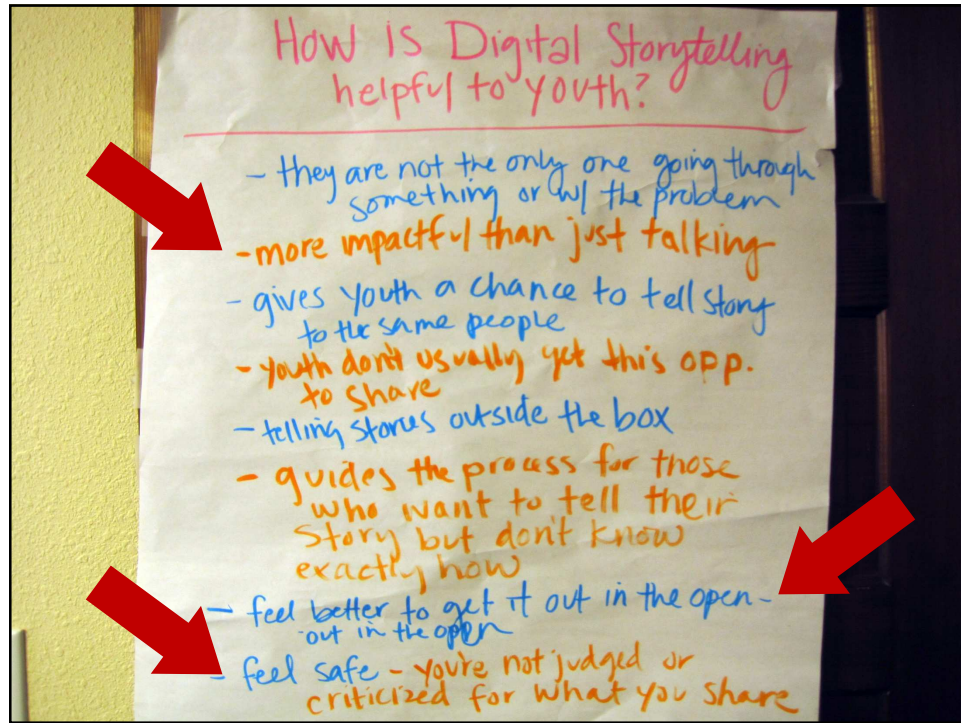 How is Digital Storytelling
helpful to youth?
- they are not the only one going through
something or w/ the problem
- more impactful than just talking
- gives youth a chance to tell story
to the same people
- youth don't usually get this opp.
to share
- telling stories outside the box
- guides the process for those
who want to tell their
story but don't know
exactly how
- feel better to get it out in the open -
out in the open
- feel safe - you're not judged or
criticized for what you share